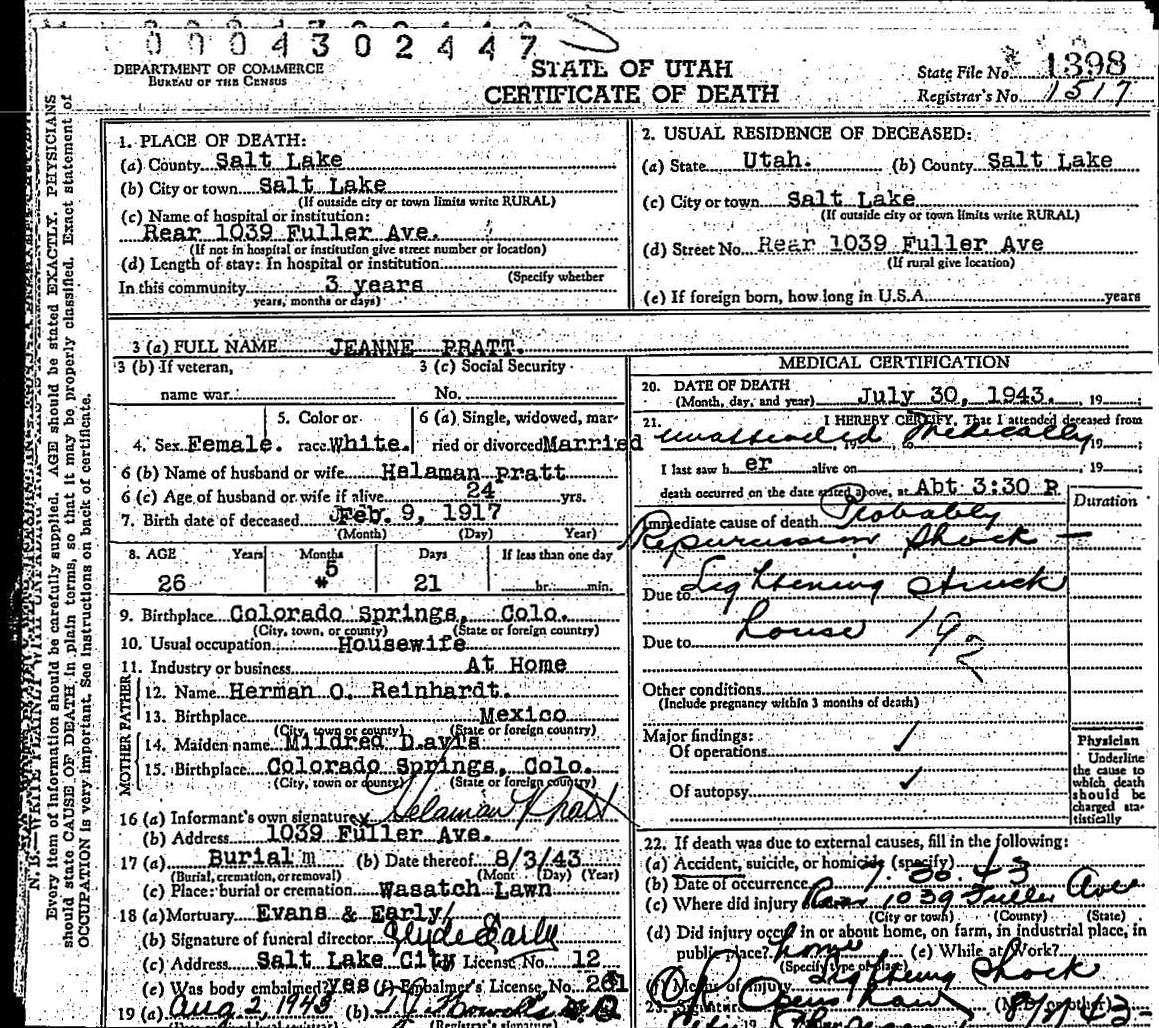 0004302447
DEPARTMENT OF COMMERCE
BUREAU OF THE CENSUS
STATE OF UTAH
CERTIFICATE OF DEATH
State File No. 1398
Registrar's No. 1517
Every item of information should be carefully supplied. AGE should be stated EXACTLY. PHYSICIANS
should state CAUSE OF DEATH in plain terms, so that it may be properly classified. Exact statement of
OCCUPATION is very important. See instructions on back of certificate.
1. PLACE OF DEATH:
(a) County Salt Lake
(b) City or town Salt Lake
(If outside city or town limits write RURAL)
(c) Name of hospital or institution:
Rear 1039 Fuller Ave.
(If not in hospital or institution give street number or location)
(d) Length of stay: In hospital or institution
(Specify whether
In this community 3 years
years, months or days)
2. USUAL RESIDENCE OF DECEASED:
(a) State Utah. (b) County Salt Lake
(c) City or town Salt Lake
(If outside city or town limits write RURAL)
(d) Street No. Rear 1039 Fuller Ave
(If rural give location)
(e) If foreign born, how long in U.S.A. years
3 (a) FULL NAME JEANNE PRATT.
3 (b) If veteran, 3 (c) Social Security
name war No.
5. Color or 6 (a) Single, widowed, mar-
4. Sex Female. race White. ried or divorced Married
6 (b) Name of husband or wife Helaman Pratt
6 (c) Age of husband or wife if alive 24 yrs.
7. Birth date of deceased Feb. 9, 1917
(Month) (Day) Year)
8. AGE Years Months Days If less than one day
26 5 21 hr. min.
9. Birthplace Colorado Springs, Colo.
(City, town, or county) (State or foreign country)
10. Usual occupation Housewife
11. Industry or business At Home
FATHER
12. Name Herman O. Reinhardt.
13. Birthplace Mexico
(City, town or county) (State or foreign country)
MOTHER
14. Maiden name Mildred Davis
15. Birthplace Colorado Springs, Colo.
(City, town or county) (State or foreign country)
16 (a) Informant's own signature x Helaman Pratt
(b) Address 1039 Fuller Ave.
17 (a) Burial (b) Date thereof 8/3/43
(Burial, cremation, or removal) (Mont (Day) (Year)
(c) Place: burial or cremation Wasatch Lawn
18 (a) Mortuary Evans & Early
(b) Signature of funeral director Clyde Early
(c) Address Salt Lake City License No. 12
(e) Was body embalmed? yes Embalmer's License No. 261
19 (a) Aug 2, 1943 (b)
Registrar's signature)
MEDICAL CERTIFICATION
20. DATE OF DEATH
(Month, day, and year) July 30, 1943. , 19 ;
21. I HEREBY CERTIFY, That I attended deceased from
unattended medically 19 ;
I last saw h er alive on , 19 ;
death occurred on the date stated above, at Abt 3:30 P
Duration
Immediate cause of death Probably
Repurcussion Shock —
Due to Lightening struck
Due to house 192
Other conditions
(Include pregnancy within 3 months of death)
Major findings:
Of operations ✓
Of autopsy ✓
Physician
Underline
the cause to
which death
should be
charged sta-
tistically
22. If death was due to external causes, fill in the following:
(a) Accident, suicide, or homicide (specify)
(b) Date of occurrence 7.30.43
(c) Where did injury Rear 1039 Fuller Ave
(City or town) (County) (State)
(d) Did injury occur in or about home, on farm, in industrial place, in
public place? home (e) While at Work?
(Specify type of place)
(f) Means of injury Lightening Shock
23. Signature